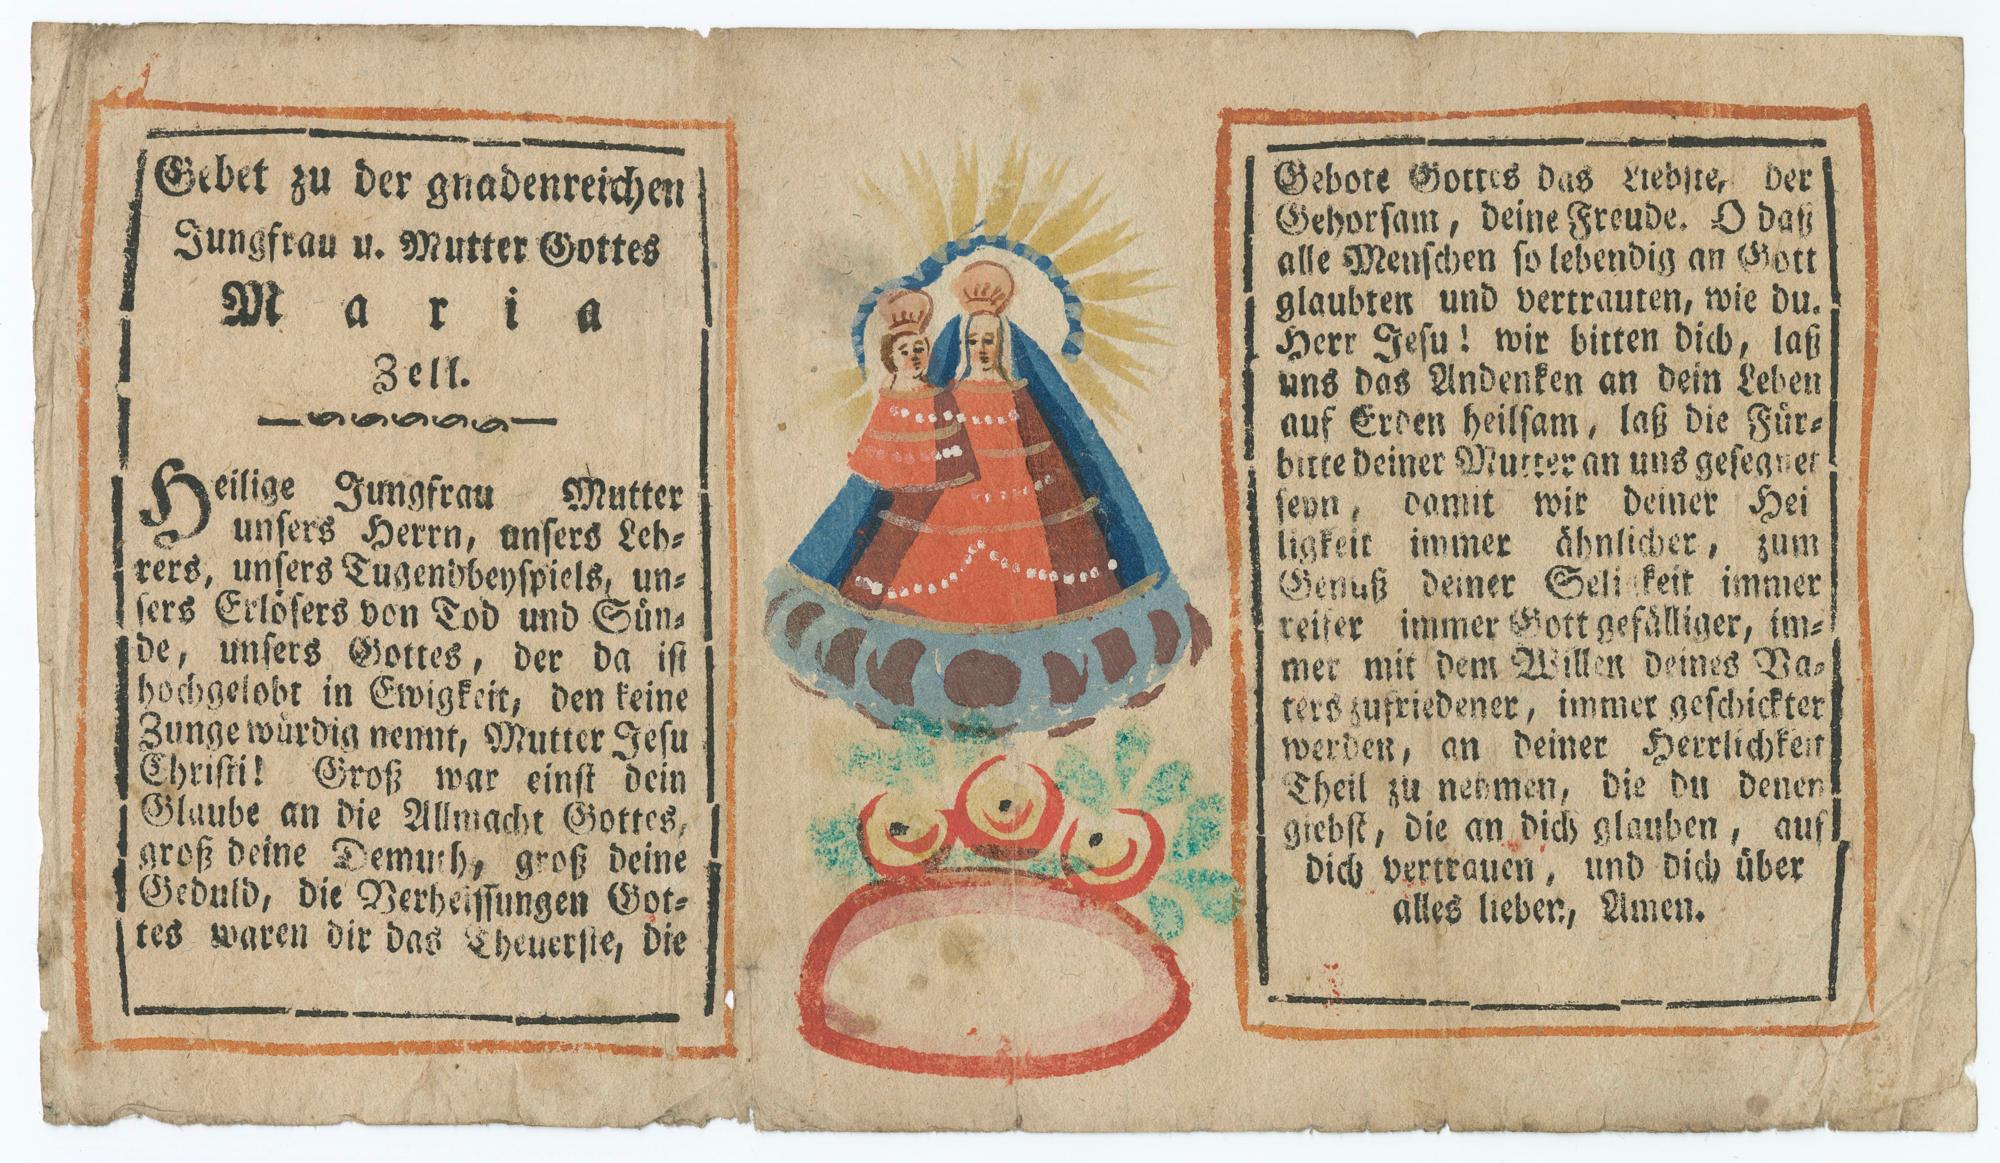 Gebet zu der gnadenreichen
Jungfrau u. Mutter Gottes
Maria
Zell.
Heilige Jungfrau Mutter
unsers Herrn, unsers Leh-
rers, unsers Tugendbeyspiels, un-
sers Erlösers von Tod und Sün-
de, unsers Gottes, der da ist
hochgelobt in Ewigkeit, den keine
Zunge würdig nennt, Mutter Jesu
Christi! Groß war einst dein
Glaube an die Allmacht Gottes,
groß deine Demuth, groß deine
Geduld, die Verheissungen Got-
tes waren dir das Theuerste, die
Gebote Gottes das Liebste, der
Gehorsam, deine Freude. O daß
alle Menschen so lebendig an Gott
glaubten und vertrauten, wie du.
Herr Jesu! wir bitten dich, laß
uns das Andenken an dein Leben
auf Erden heilsam, laß die Für-
bitte deiner Mutter an uns gesegnet
seyn, damit wir deiner Hei
ligkeit immer ähnlicher, zum
Genuß deiner Seligkeit immer
reifer immer Gott gefälliger, im-
mer mit dem Willen deines Va-
ters zufriedener, immer geschickter
werden, an deiner Herrlichkeit
Theil zu nehmen, die du denen
giebst, die an dich glauben, auf
dich vertrauen, und dich über
alles lieben, Amen.